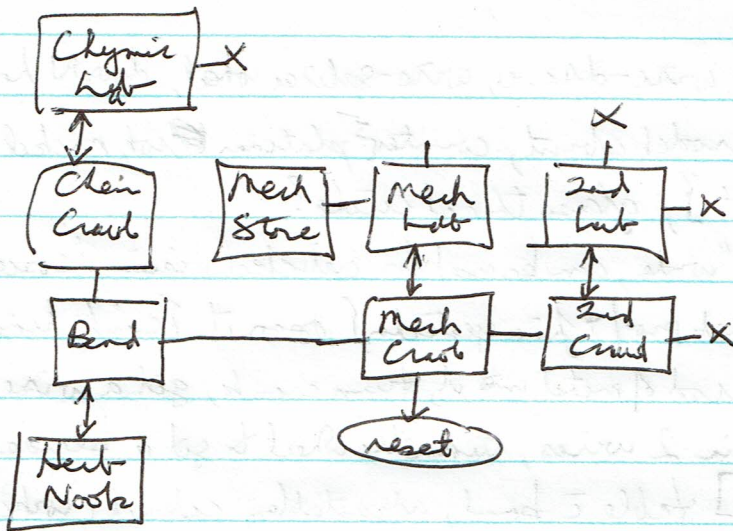 Chymic
Lab
X
X
Chem
Crawl
Mech
Store
Mech
Lab
2nd
Lab
X
Bend
Mech
Crawl
2nd
Crawl
X
reset
Herb
Nook